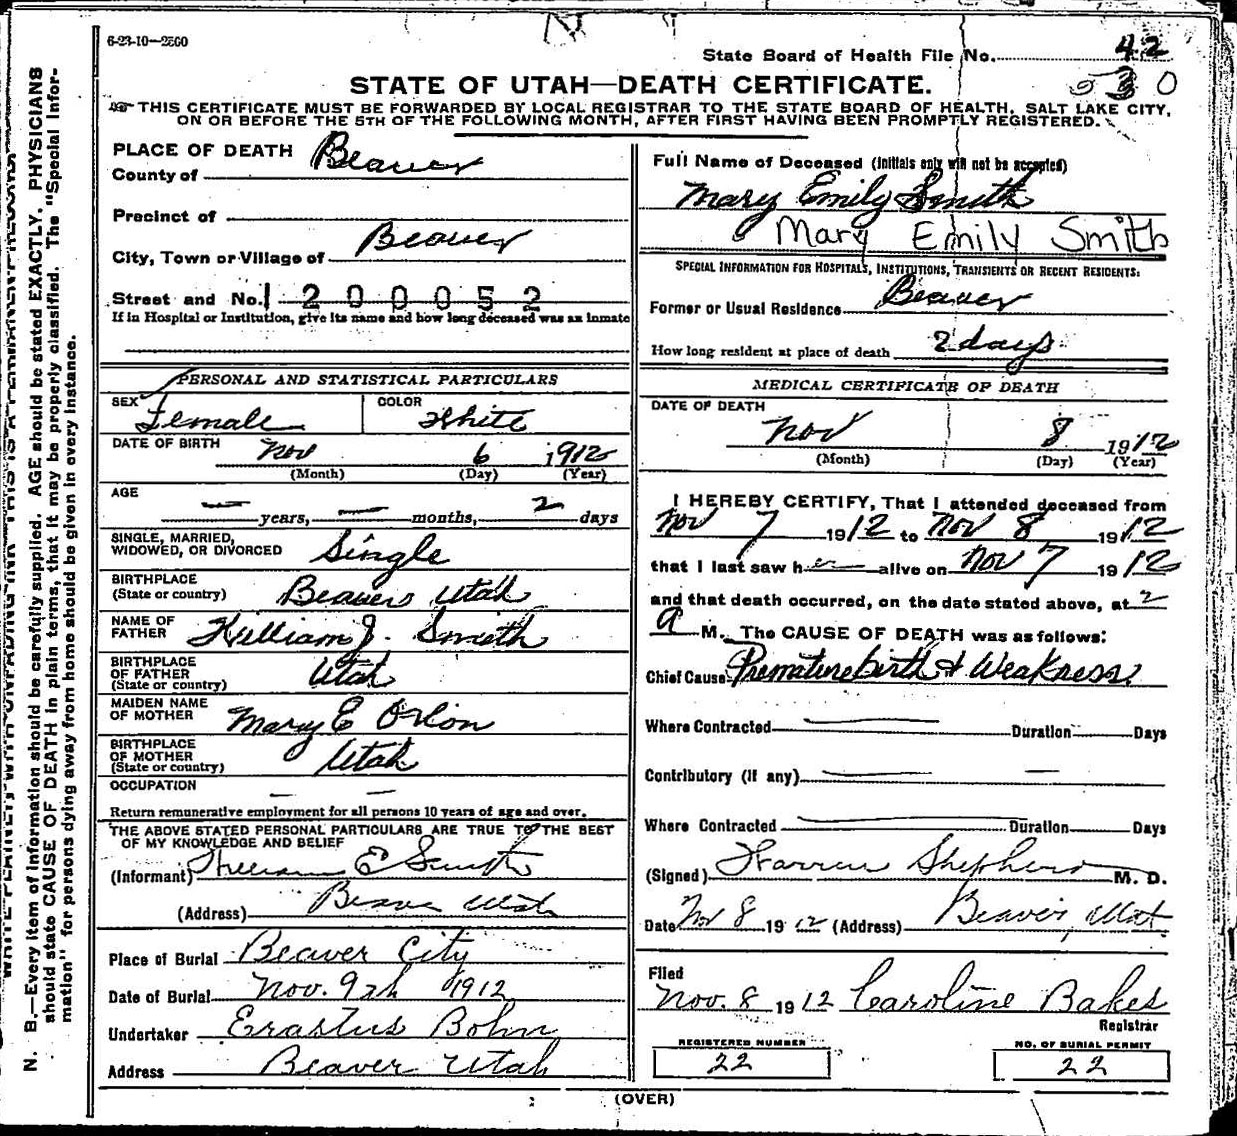 6-23-10—2500
State Board of Health File No. 42
530
STATE OF UTAH—DEATH CERTIFICATE.
THIS CERTIFICATE MUST BE FORWARDED BY LOCAL REGISTRAR TO THE STATE BOARD OF HEALTH, SALT LAKE CITY,
ON OR BEFORE THE 5TH OF THE FOLLOWING MONTH, AFTER FIRST HAVING BEEN PROMPTLY REGISTERED.
N. B.—Every item of information should be carefully supplied. AGE should be stated EXACTLY. PHYSICIANS
should state CAUSE OF DEATH in plain terms, that it may be properly classified. The "Special Infor-
mation" for persons dying away from home should be given in every instance.
PLACE OF DEATH
County of Beaver
Precinct of
City, Town or Village of Beaver
Street and No. 1200052
If in Hospital or Institution, give its name and how long deceased was an inmate
PERSONAL AND STATISTICAL PARTICULARS
SEX Female COLOR White
DATE OF BIRTH Nov 6 1912
(Month) (Day) (Year)
AGE
— years, — months, 2 days
SINGLE, MARRIED,
WIDOWED, OR DIVORCED Single
BIRTHPLACE
(State or country) Beaver Utah
NAME OF
FATHER William J. Smith
BIRTHPLACE
OF FATHER
(State or country) Utah
MAIDEN NAME
OF MOTHER Mary E Orton
BIRTHPLACE
OF MOTHER
(State or country) Utah
OCCUPATION — —
Return remunerative employment for all persons 10 years of age and over.
THE ABOVE STATED PERSONAL PARTICULARS ARE TRUE TO THE BEST
OF MY KNOWLEDGE AND BELIEF
(Informant) E Smith
(Address) Beaver Utah
Place of Burial Beaver City
Date of Burial Nov. 9th 1912
Undertaker Erastus Bohn
Address Beaver Utah
Full Name of Deceased (Initials only will not be accepted)
Mary Emily Smith
Mary Emily Smith
SPECIAL INFORMATION FOR HOSPITALS, INSTITUTIONS, TRANSIENTS OR RECENT RESIDENTS:
Former or Usual Residence Beaver
How long resident at place of death 2 days
MEDICAL CERTIFICATE OF DEATH
DATE OF DEATH
Nov 8 1912
(Month) (Day) (Year)
I HEREBY CERTIFY, That I attended deceased from
Nov 7 1912 to Nov 8 1912
that I last saw her alive on Nov 7 1912
and that death occurred, on the date stated above, at 2
a M. The CAUSE OF DEATH was as follows:
Chief Cause Premature birth & Weakness
Where Contracted — Duration — Days
Contributory (if any) — —
Where Contracted — Duration — Days
(Signed) Warren Shepherd M. D.
Date Nov 8 1912 (Address) Beaver, Utah
Filed
Nov. 8 1912 Caroline Bakes
Registrar
REGISTERED NUMBER
22
NO. OF BURIAL PERMIT
22
(OVER)